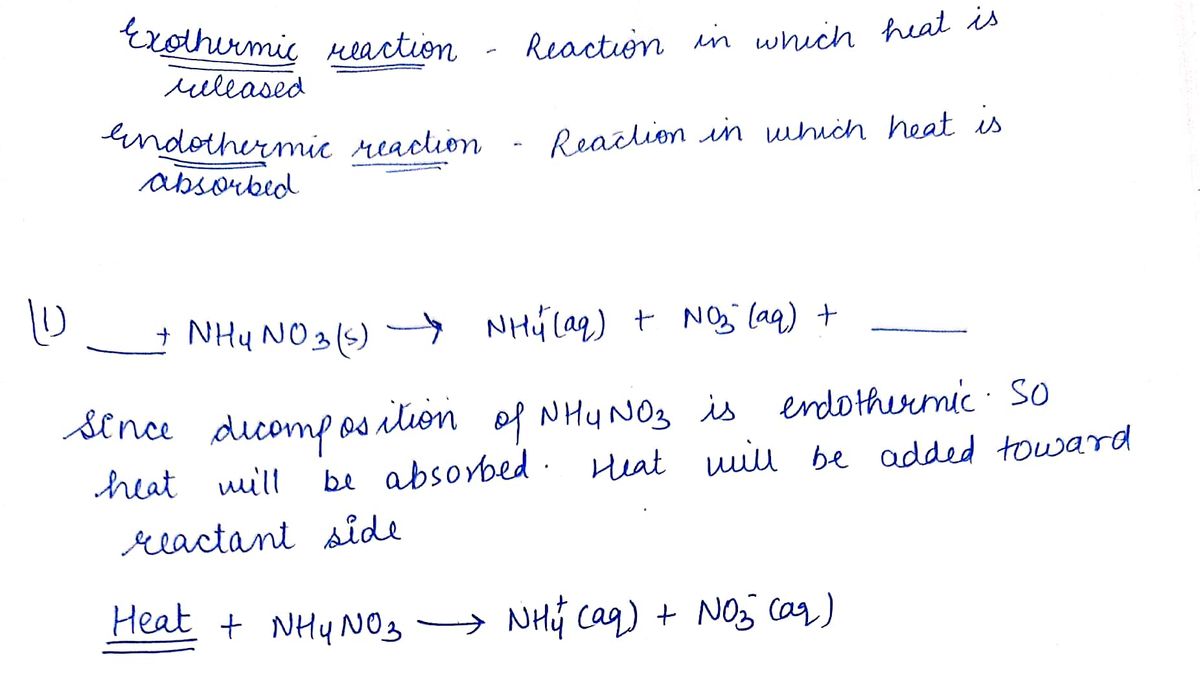 Exothermic reaction - Reaction in which heat is
released
Endothermic reaction - Reaction in which heat is
absorbed
(1) ___ + NH4NO3(s) → NH4+(aq) + NO3-(aq) + ___
Since decomposition of NH4NO3 is endothermic. So
heat will be absorbed. Heat will be added toward
reactant side
Heat + NH4NO3 → NH4+(aq) + NO3-(aq)